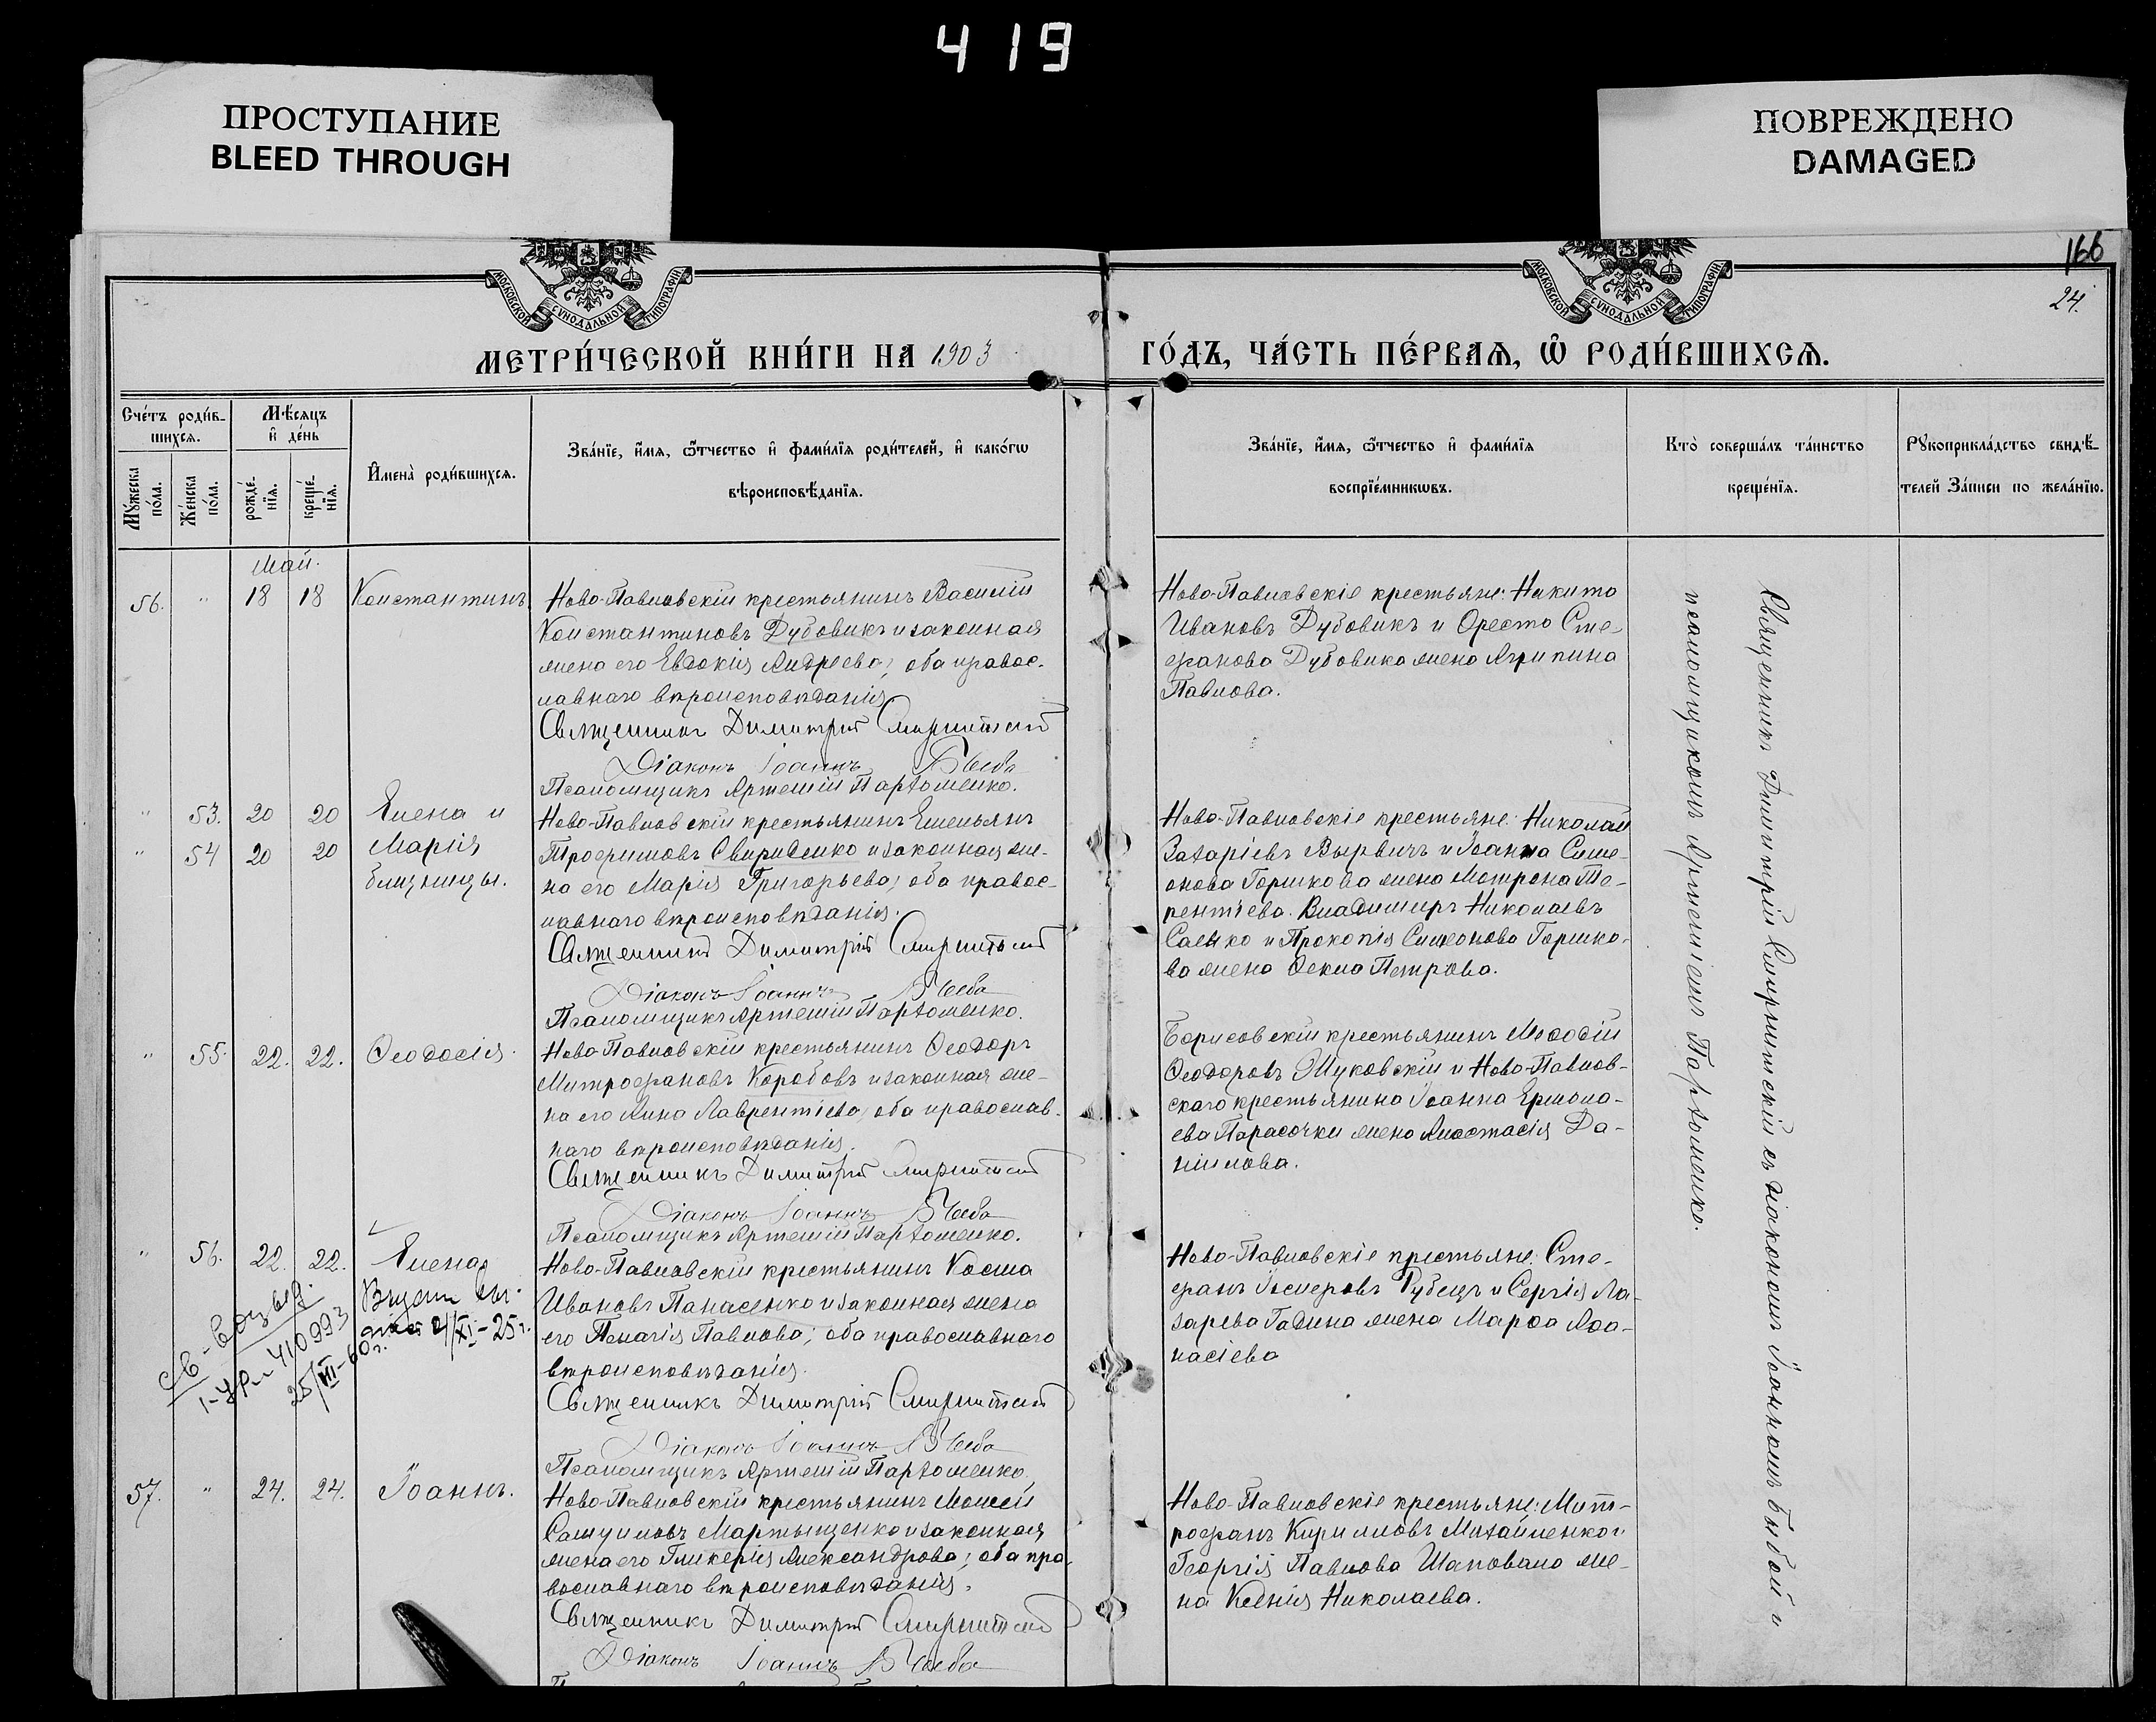 419
ПРОСТУПАНИЕ
BLEED THROUGH
ПОВРЕЖДЕНО
DAMAGED
166
24.
МОСКОВСКОЙ СѴНОДАЛЬНОЙ ТИПОГРАФІИ
МОСКОВСКОЙ СѴНОДАЛЬНОЙ ТИПОГРАФІИ
МЕТРИ́ЧЕСКОЙ КНИ́ГИ НА 1903
ГО́ДЪ, ЧА́СТЬ ПЕ́РВАѦ, Ѡ҆ РОДИ́ВШИХСѦ.
Сче́тъ роди́в-
шихсѧ.
Мѣ́сѧцъ
и҆ де́нь
Мꙋ́жеска
по́ла.
Же́нска
по́ла.
рожде́-
нїѧ.
креще́-
нїѧ.
И҆мена̀ роди́вшихсѧ.
Зва́нїе, и҆́мѧ, ѻ҆́тчество и҆ фами́лїѧ роди́телей, и҆ како́гѡ
вѣроисповѣ́данїѧ.
Зва́нїе, и҆́мѧ, ѻ҆́тчество и҆ фами́лїѧ
воспрїе́мникѡвъ.
Кто̀ соверша́лъ та́инство
креще́нїѧ.
Рꙋкоприкла́дство свидѣ́-
телей За́писи по жела́нїю.
Май.
56. " 18 18 Константинъ
Ново-Павловскій крестьянинъ Василій
Константиновъ Дубовикъ и законная
жена его Евдокія Андреева; оба правос-
лавнаго вѣроисповѣданія
Священникъ Димитрій Смирнитскій
Діаконъ Іоаннъ
Псаломщикъ Артемій Пархоменко.
Ново-Павловскіе крестьяне: Никита
Ивановъ Дубовикъ и Ореста Сте-
фанова Дубовика жена Агрипина
Павлова.
" 53. 20 20 Елена и
" 54 20 20 Марія
близницы.
Ново-Павловскій крестьянинъ Емельянъ
Трофимовъ Свириденко и законная же-
на его Марія Григорьева; оба правос-
лавнаго вѣроисповѣданія.
Священникъ Димитрій Смирнитскій
Діаконъ Іоаннъ
Псаломщикъ Артемій Пархоменко.
Ново-Павловскіе крестьяне: Николай
Захаріевъ Вырвичъ и Іоанна Симе-
онова Горшкова жена Матрона Те-
рентіева. Владимиръ Николаевъ
Саенко и Прокопія Симеонова Горшко-
ва жена Ѳекла Петрова.
" 55. 22. 22. Ѳеодосія.
Ново-Павловскій крестьянинъ Ѳеодоръ
Митрофановъ Коробовъ и законная же-
на его Анна Лаврентіева; оба православ-
наго вѣроисповѣданія.
Священникъ Димитрій Смирнитскій
Діаконъ Іоаннъ
Псаломщикъ Артемій Пархоменко.
Борисовскій крестьянинъ Меѳодій
Ѳеодоровъ Жуковскій и Ново-Павлов-
скаго крестьянина Іоанна Ермола-
ева Парасочки жена Анастасія Да-
ніилова.
" 56. 22. 22. Елена
4/XI-25г.
I-УР № 410993
25/VII-60г.
Ново-Павловскій крестьянинъ Косма
Ивановъ Панасенко и законная жена
его Пелагія Павлова; оба православнаго
вѣроисповѣданія.
Священникъ Димитрій Смирнитскій
Діаконъ Іоаннъ
Псаломщикъ Артемій Пархоменко.
Ново-Павловскіе крестьяне: Сте-
фанъ Рубецъ и Сергія Ла-
зарева Гадина жена Марѳа Аѳа-
насіева
57. " 24. 24. Іоаннъ.
Ново-Павловскій крестьянинъ Моисей
Самуиловъ Мартыщенко и законная
жена его Гликерія Александрова; оба пра-
вославнаго вѣроисповѣданія.
Священникъ Димитрій Смирнитскій
Діаконъ Іоаннъ
Ново-Павловскіе крестьяне: Мит-
рофанъ Кирилловъ Михайленко и
Георгія Павлова Шаповала же-
на Ксенія Николаева.
Священникъ Димитрій Смирнитскій съ діакономъ Іоанномъ и
псаломщикомъ Артеміемъ Пархоменко.